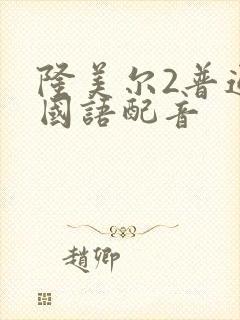 隆美尔2普通
國語配音
趙卿